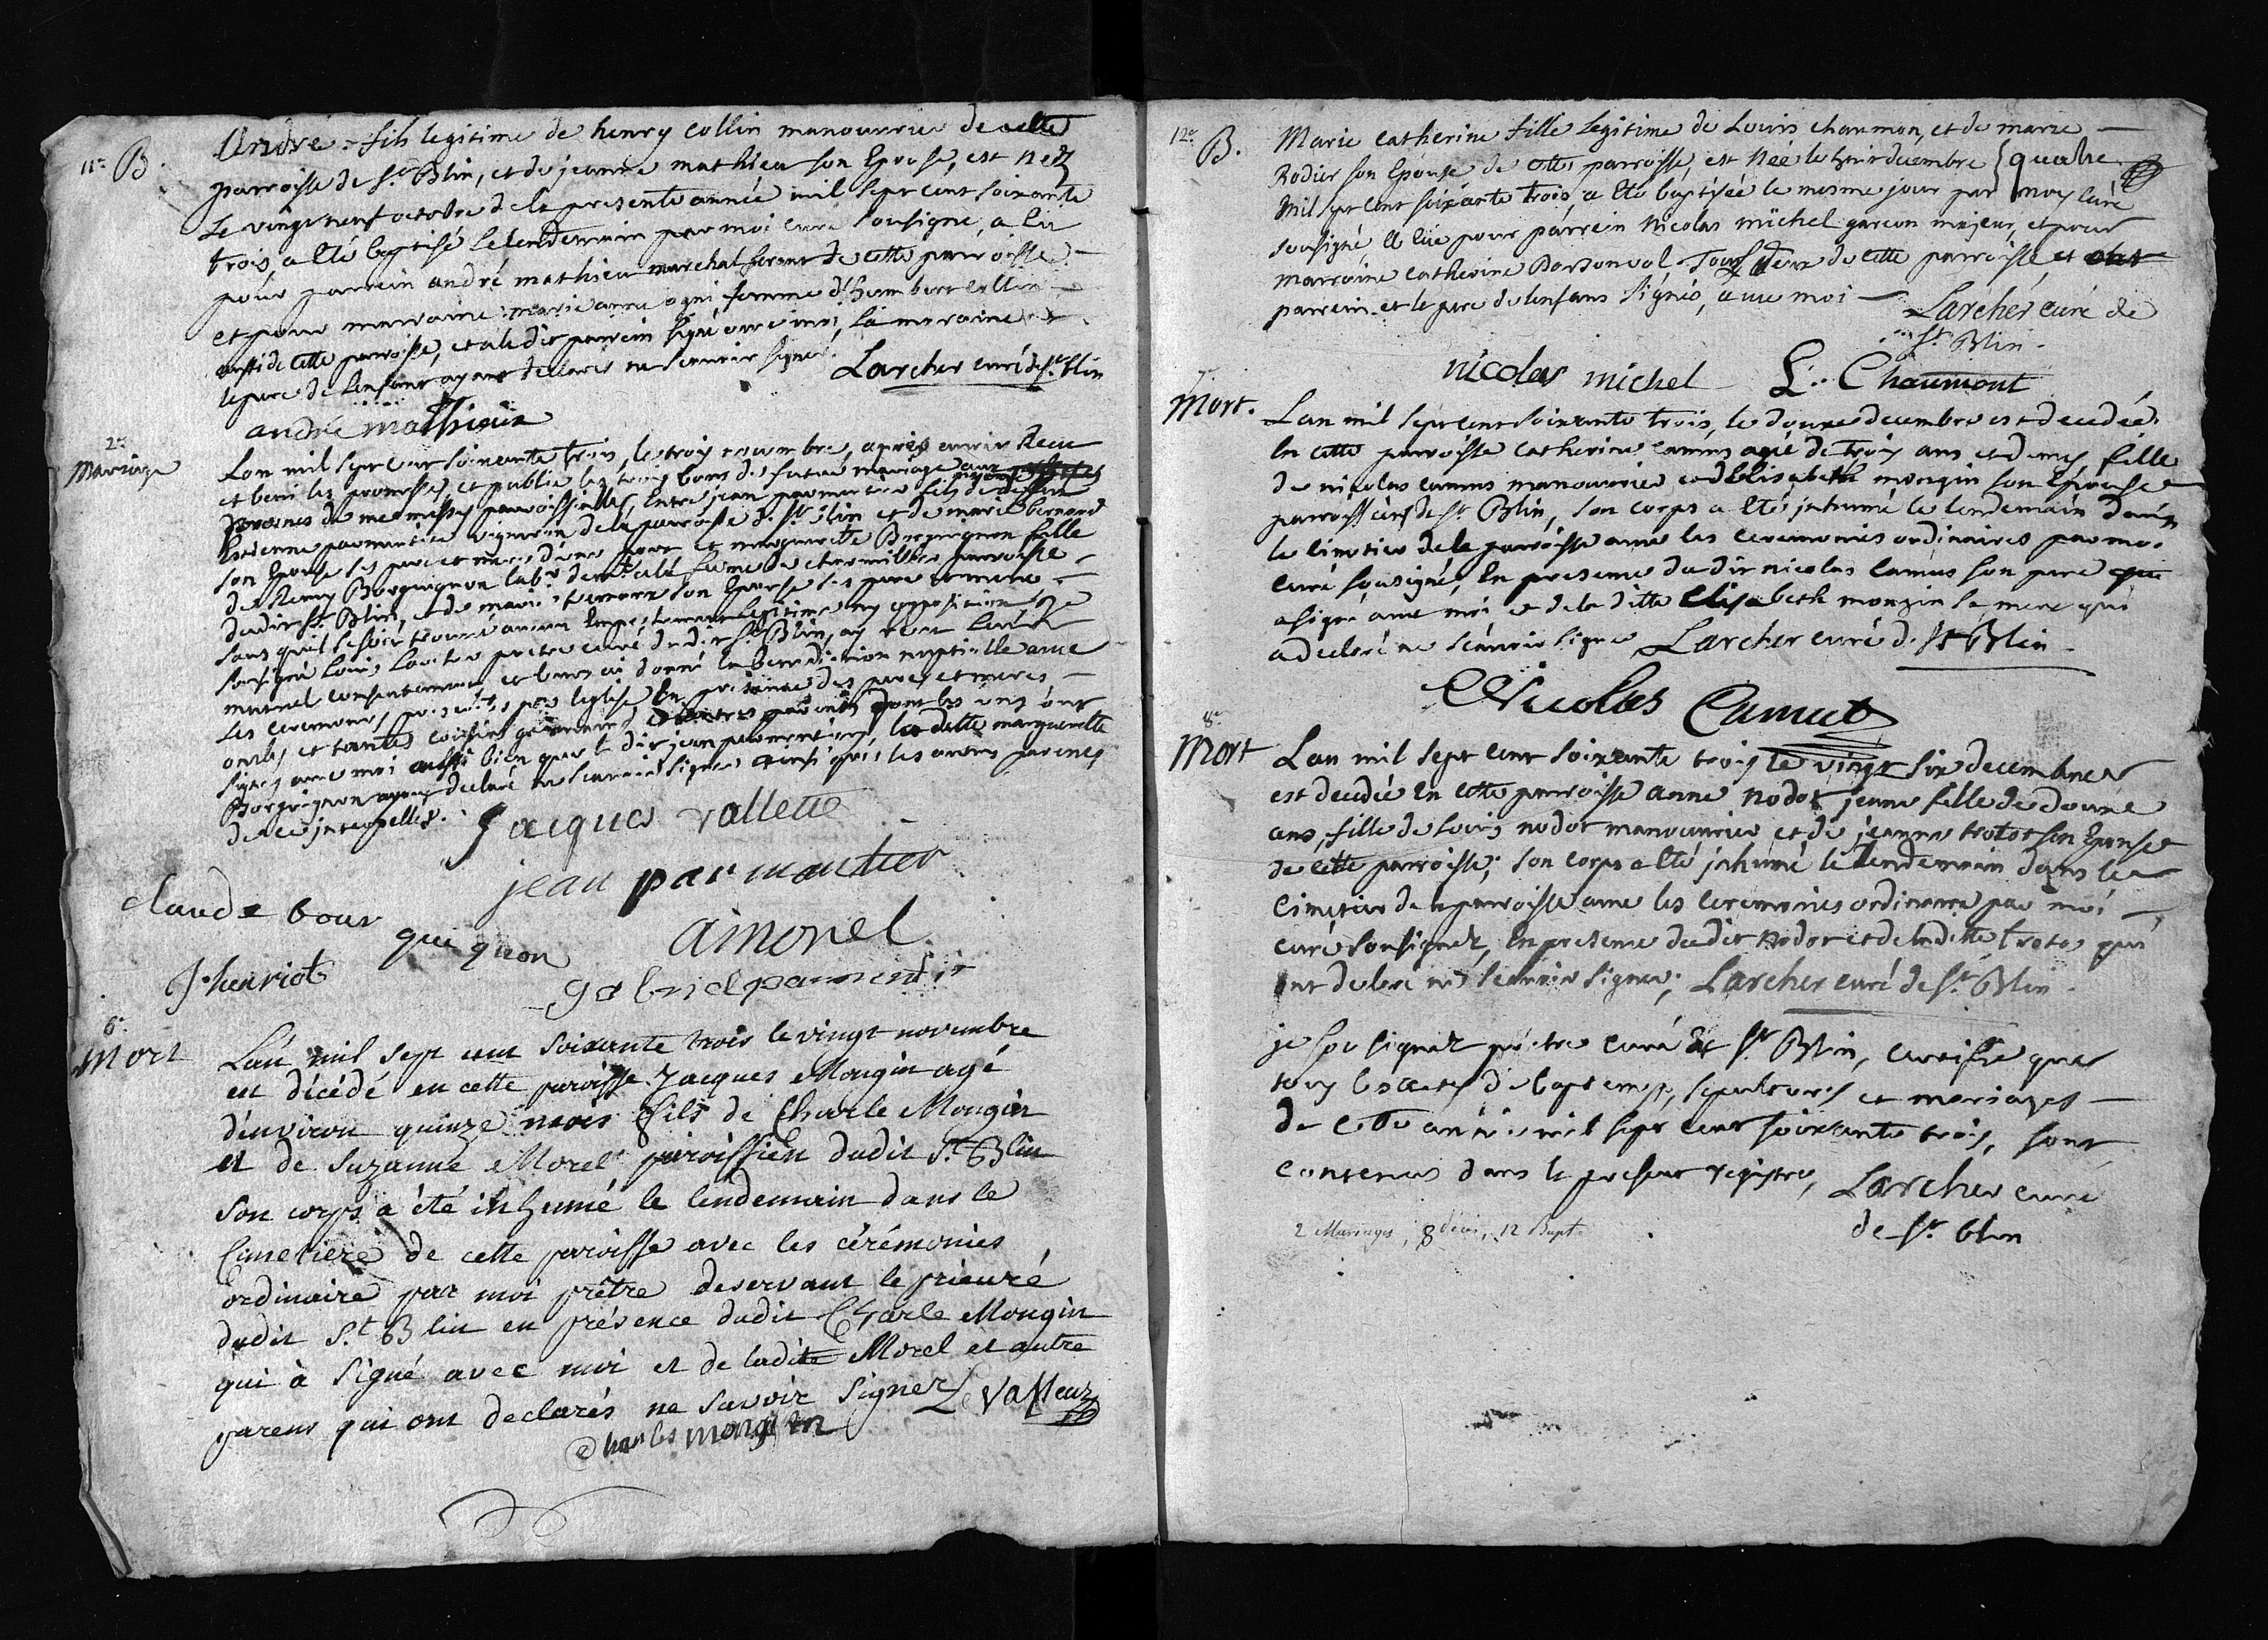 11e B.
André fils legitime de henry collin manouvrier de cette
parroisse de St Blin, et de jeanne mathieu son Epouse, est nez
Le vingt neuf octobre de la presente année mil sept cent soixante
trois, a été baptisé le lendemain par moi curé sousigné, a eu
pour parrein andré mathieu marchal ferant de cette parroisse
et pour marraine marie anne ogni femme d'humbert collin
aussi de cette parroisse, et a ledit parrein signé avec moi, la maraine et
le pere de l'enfant ayant declarés ne scauoir signer.
Larcher curé de St blin
andré mathieu
2e
Mariage
Lan mil sept cent soixante trois, le trois novembre, apres auoir Recu
et beni les promesses, et publié les trois bans du futur mariage aux
proenes de mes messes parroissialles, Entre jean parmentier fils de
Estienne parmentier vigneron de la parroisse de St Blin et de marie bernard
son Epouse ses pere et mere, d'une part et marguerite Borguignon fille
de Remy Borguignon lab.r
dudit St Blin, et de marie son Epouse ses pere et mere
sans qu'il se soit trouvé aucun Empechement legitime ny opposition, je
sousigné Louis Larcher pretre curé dudit St Blin, ay reçu leur
mutuel consentement et leurs ai donné la benediction nuptialle avec
les ceremonies prescrites par l'eglise En presence des peres et meres
oncles et tantes cousins germains et autres parents dont les uns ont
signes avec moi aussi bien que le dit jean parmentier, la ditte marguerite
Borguignon ayant declaré ne scauoir signer ainsi que les autres parents
de ce interpellez.
Jacques vallette
jean parmantier
claude bour
gui gnon
amorel
J. henriot
gabriel parmentir
6e
Mort
L'an mil sept cent soixante trois le vingt novembre
est décédé en cette paroisse Jacques Mougin agé
d'environ quinze mois fils de Charle Mougin
et de Suzanne Morel paroissien dudit St Blin
son corps a été inhumé le lendemain dans le
Cimetiere de cette paroisse avec les cérémonies
ordinaire par moi prêtre deservant le prieuré
dudit St Blin en présence dudit Charle Mougin
qui à signé avec moi et de ladite Morel et autre
parens qui ont declarés ne savoir signer Le Vasseur
Charles mongin
12e
B.
Marie catherine fille legitime de Louis chaumon, et de marie
Rodier son Epouse de cette parroisse, est née le huit decembre quatre
mil sept cent soixante trois, a eté baptisée le mesme jour par moy curé
sousigné Elle eue pour parrein Nicolas michel garcon majeur, et pour
marraine catherine Bordonval Tous deux de cette parroisse, et
parrein et le pere de lenfans signés, avec moi
Larcher curé de
St Blin.
nicolas michel L. Chaumont
7e
Mort.
Lan mil sept cent soixante trois, le douze decembre est decedée
En cette parroisse catherine camus agée de trois ans et demy fille
de nicolas camus manouvrier et d'Elisabeth mongin son Epouse
parroissiens de St Blin, son corps a eté jnhumé le lendemain dans
le cimetier de la parroisse avec les ceremonies ordinaires par moi
curé sousigné, En presence dudit nicolas camus son pere qui
a signé avec moi et de la ditte Elisabeth mongin sa mere qui
a declaré ne scauoir signer Larcher curé de St Blin.
Nicolas Camus
8e
Mort
Lan mil sept cent soixante trois le vingt six decembre
est decedée En cette parroisse anne nodot jeune fille de douze
ans, fille de Louis nodot manouvrier et de jeanne trotot son Epouse
de cette parroisse; son corps a eté jnhumé le lendemain dans le
cimetier de la parroisse avec les ceremonies ordinaire par moi
curé sousignez, En presence dudit nodot et de la ditte trotot qui
ont declaré ne scauoir signer; Larcher curé de St Blin.
je sousignez prêtre curé de St Blin, certifie que
tous les actes de baptemes, sepultures et mariages
de cette année mil sept cent soixante trois, sont
contenus dans le present registre, Larcher curé
de St blin
2 Mariages, 8 décés, 12 Bapt.